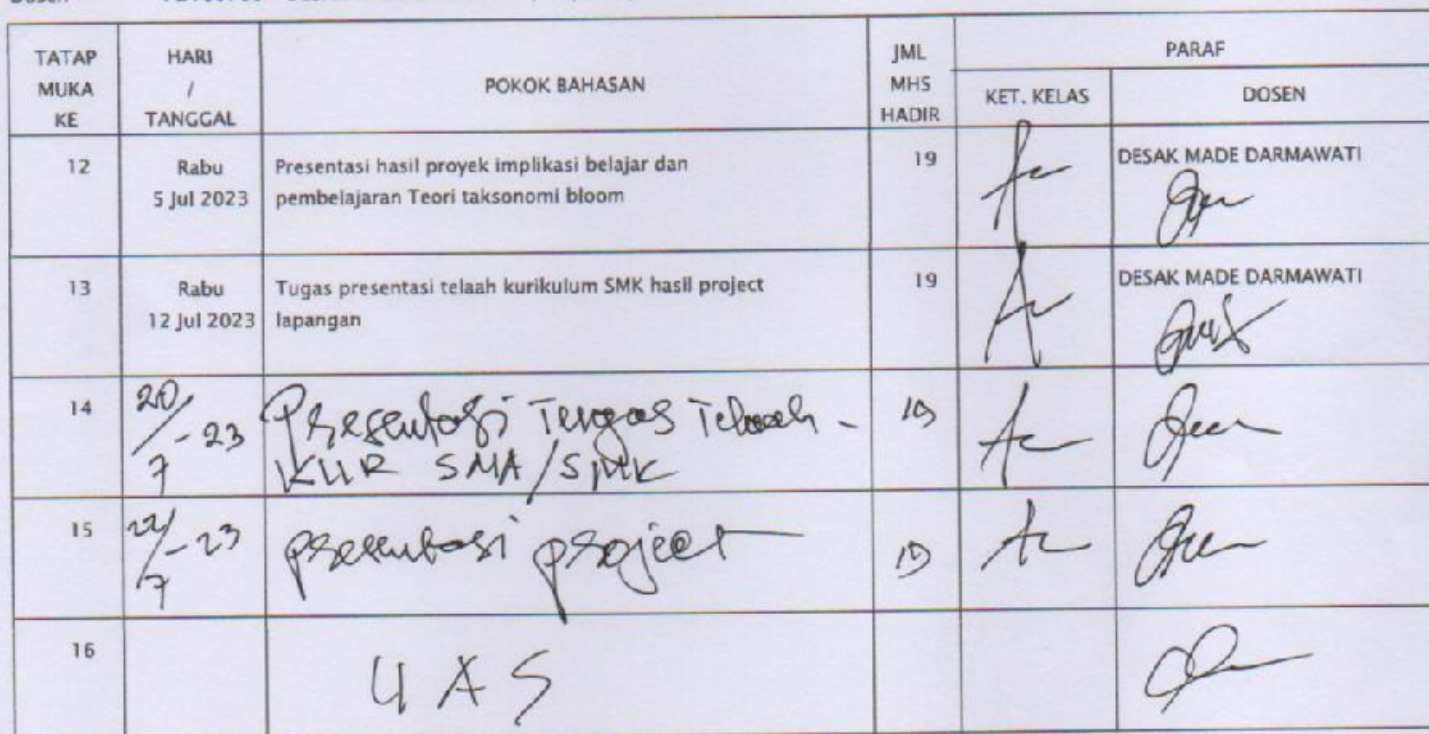 Dosen
TATAP MUKA KE
HARI / TANGGAL
POKOK BAHASAN
JML MHS HADIR
PARAF
KET. KELAS
DOSEN
12
Rabu
5 Jul 2023
Presentasi hasil proyek implikasi belajar dan
pembelajaran Teori taksonomi bloom
19
DESAK MADE DARMAWATI
13
Rabu
12 Jul 2023
Tugas presentasi telaah kurikulum SMK hasil project
lapangan
19
DESAK MADE DARMAWATI
14
20/7-23
Presentasi Tugas Telaah -
KUR SMA/SMK
19
15
presentasi project
19
16
UAS